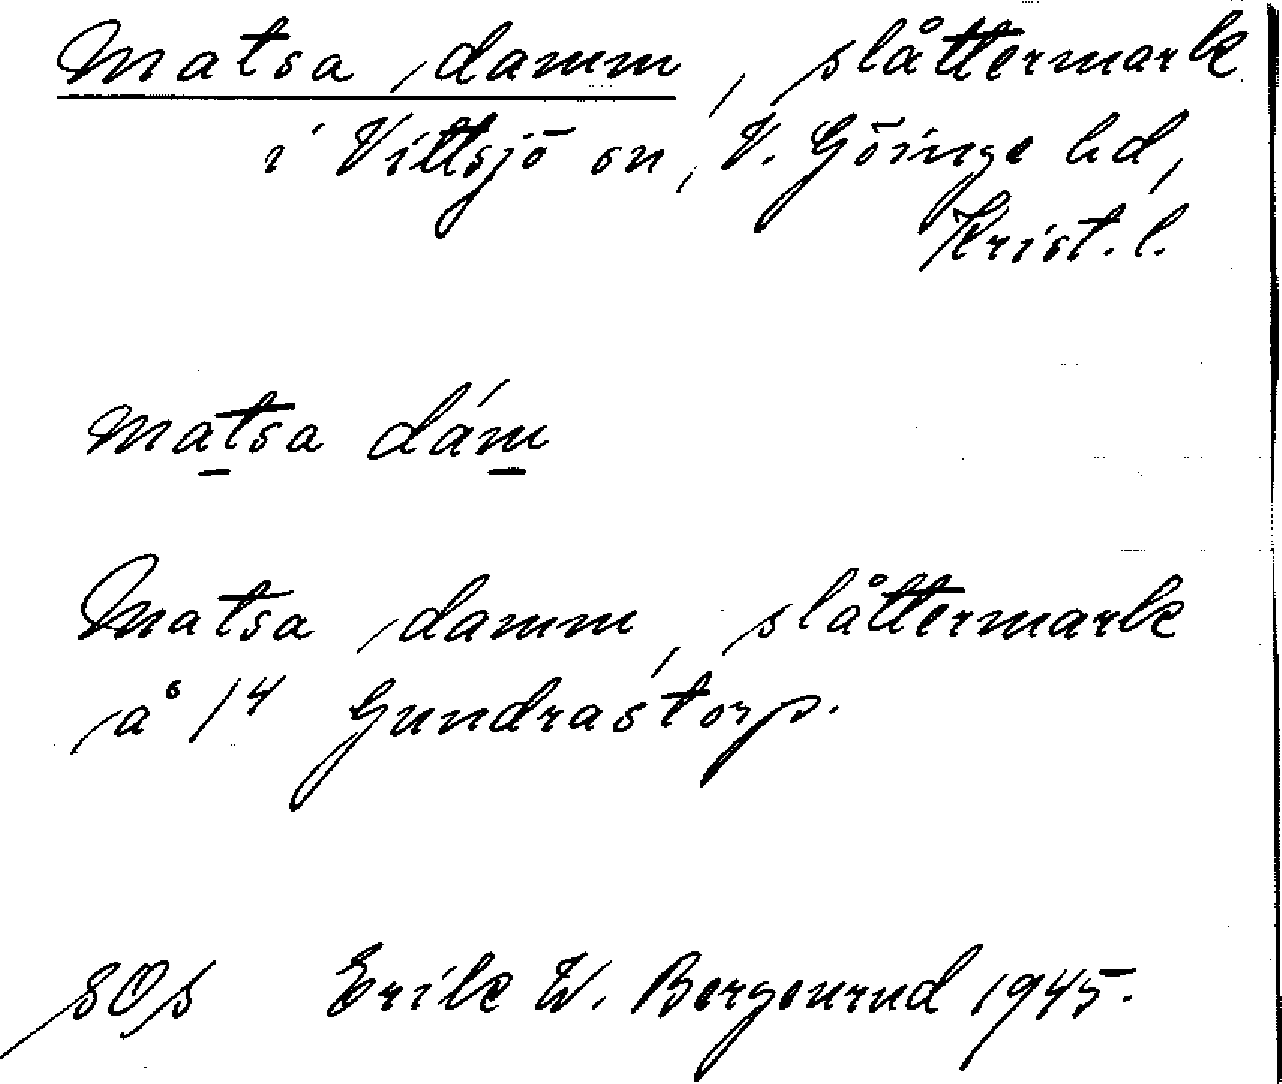 Matsa damm, slåttermark
i Vittsjö sn, V. Göinge hd,
Krist. l.
matsa dám
Matsa damm, slåttermark
å 1⁴ Gundrastorp.
SOS Erik W. Bergenrud 1945.